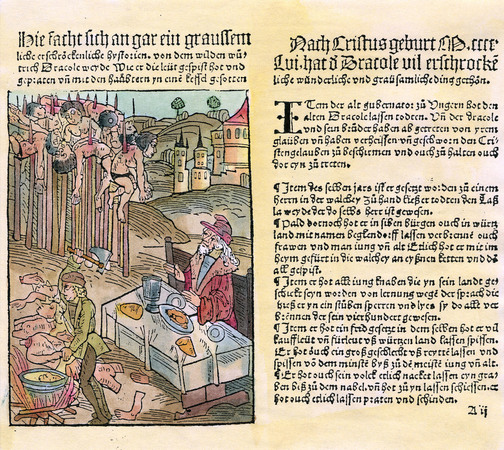 Hie facht sich an gar ein graussem
liche erschröckenliche hystorien. von dem wilden wü
trich Dracole weyde Wie er die leüt gespist hot vnd
gepraten vñ mit den haübtern yn eine kessel gesotten
Nach Cristus geburt M.cccc
Lvi. hat d Dracole vil erschrockē
liche wünderliche vnd graüsamliche ding gethon.
ITem der alt gubernator zü Ungern hot den
alten Dracole lassen todten. Vñ der dracole
vnd sein brüder haben ab getreten von yrem
glaüben vñ haben verheissen vñ geschworn den Cri
stenglauben zü beschirmen vnd ouch zü halten ouch
dor eyn zü tretten.
¶ Item des selben jars ist er gesetzt worden zü einem
herrn in der walchey Zü hand ließ er todten den Laß
la weyde der do selbs herr ist gewesen.
¶ Pald dornoch hot er in siben bürgen ouch in würtz
land mit namen begkendorff lassen verbrennē ouch
frawen vnd man iung vñ alt Etlich hot er mit im
heym gefürt in die walchey an eyßnen ketten vnd do
all gespist.
¶ Item er hot all iung knaben die yn sein land ge
schickt seyn worden von lernung wege der sprach die
ließ er yn ein stüben sperren vnd lyeß sy do all ver
brennen der sein vierhündert gewesen.
¶ Item er hot ein frid gesetzt in dem selben hot er vil
kaufleüt vñ fürleüt vß würtzen land lassen spissen.
Er hot ouch ein groß geschlecht vß reytē lassen vnd
spissen vō dem minstē byß zü dē meistē iung vñ alt.
¶ Er hot ouch sein volck etlich nacket lassen eyn gra
ben biß zü dem nabel. vñ hot zü yn lassen schiessen. Er
hot ouch etlich lassen praten vnd schinden.
A ij